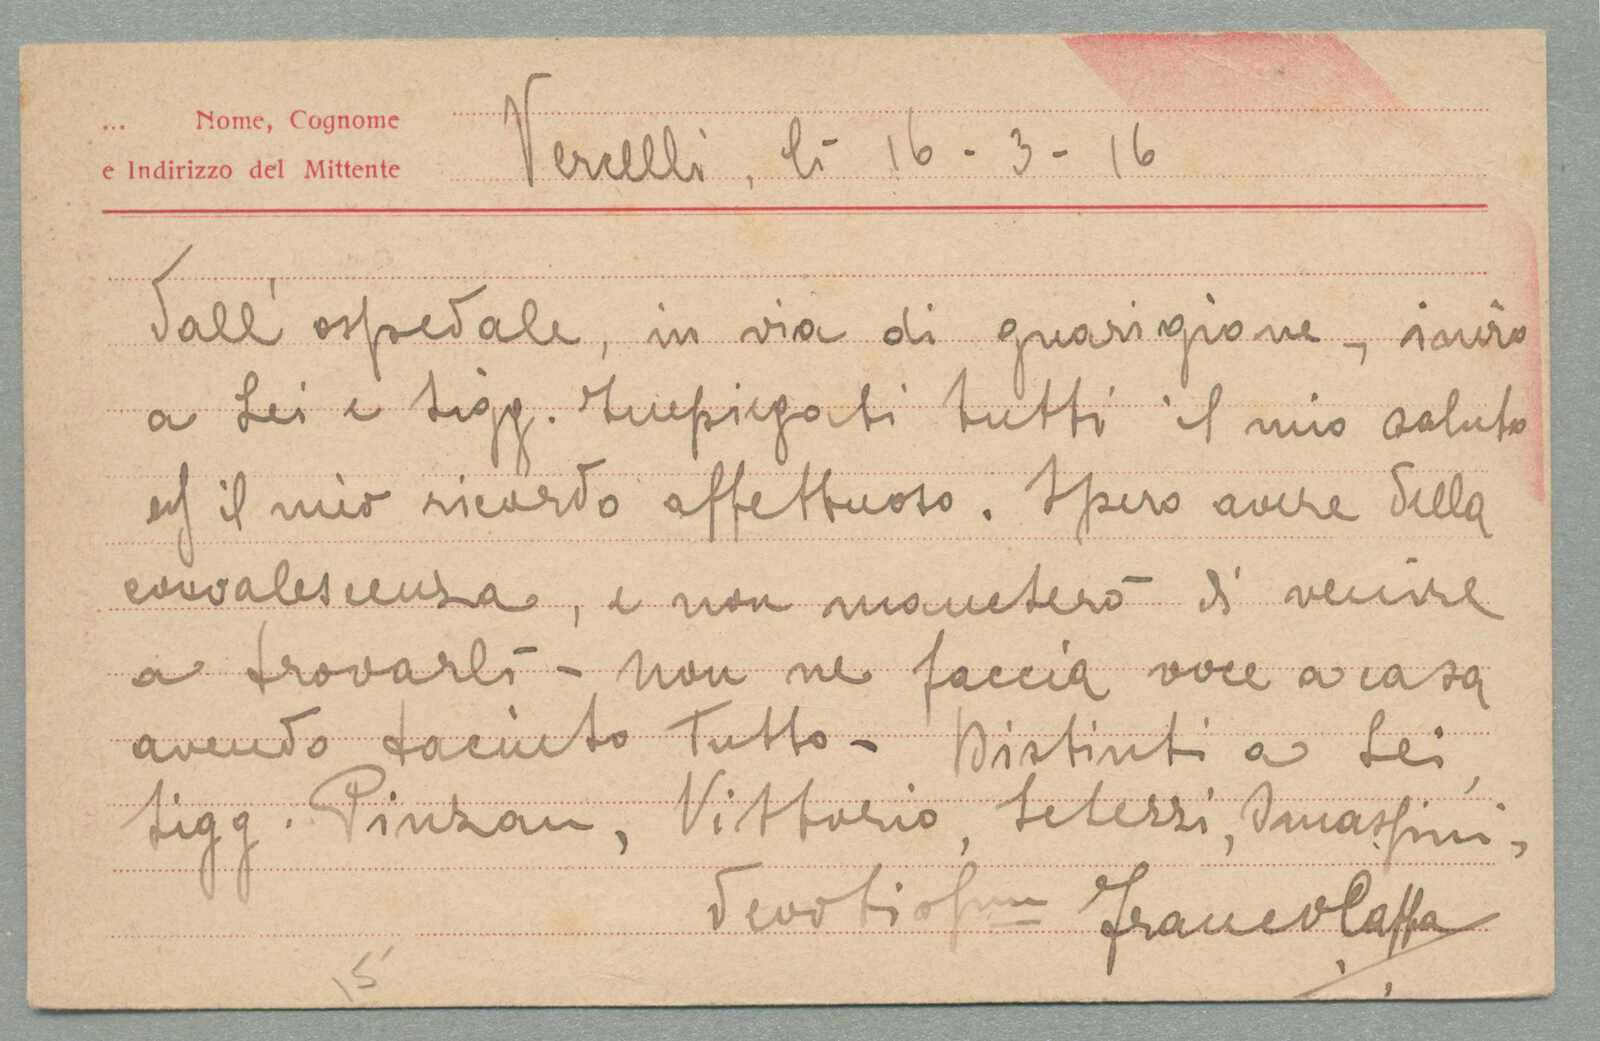 ... Nome, Cognome
e Indirizzo del Mittente
Vercelli, lì 16 - 3 - 16
Dall' ospedale, in via di guarigione, invio
a Lei e Sigg. Impiegati tutti il mio saluto
ed il mio ricordo affettuoso. Spero avere della
convalescenza, e non mancherò di venire
a trovarli - Non ne faccia voce a casa
avendo taciuto Tutto - Distinti a Lei,
Sigg. Pinzan, Vittorio,
devotissimo Franco Caffa
15